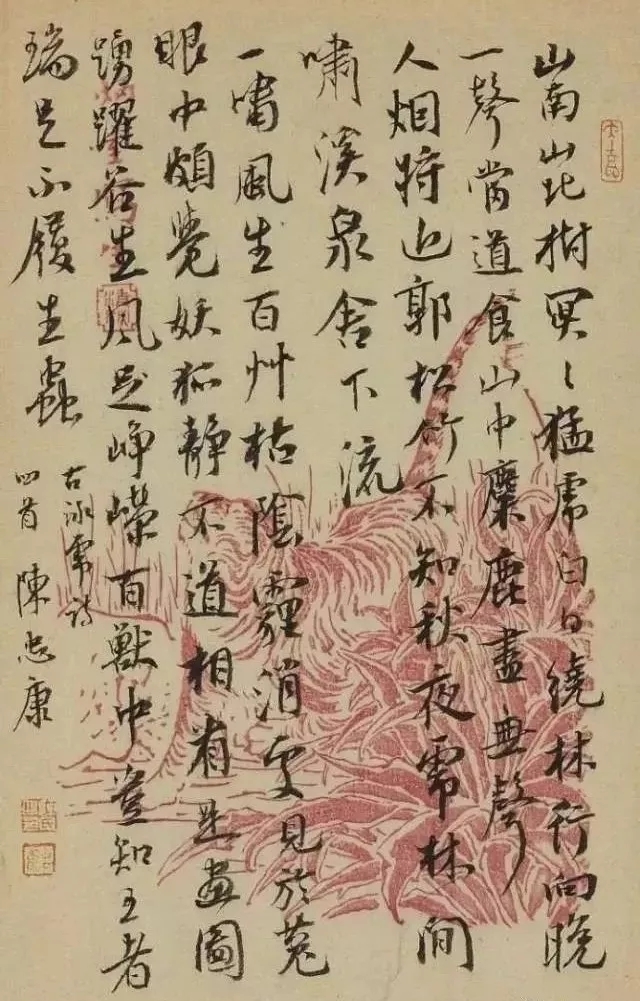 山南山北樹冥〻猛虎白日繞林行向晚
一聲當道食山中麋鹿盡無聲
人烟將近郭松竹不知秋夜虎林間
嘯溪泉舍下流
一嘯風生百艸枯陰霾消處見於菟
眼中頗覺妖狐靜不道相看是畫圖
踴躍谷生風足崢嶸百獸中豈知王者
瑞足不履生蟲
古詠虎詩
四首 陳忠康